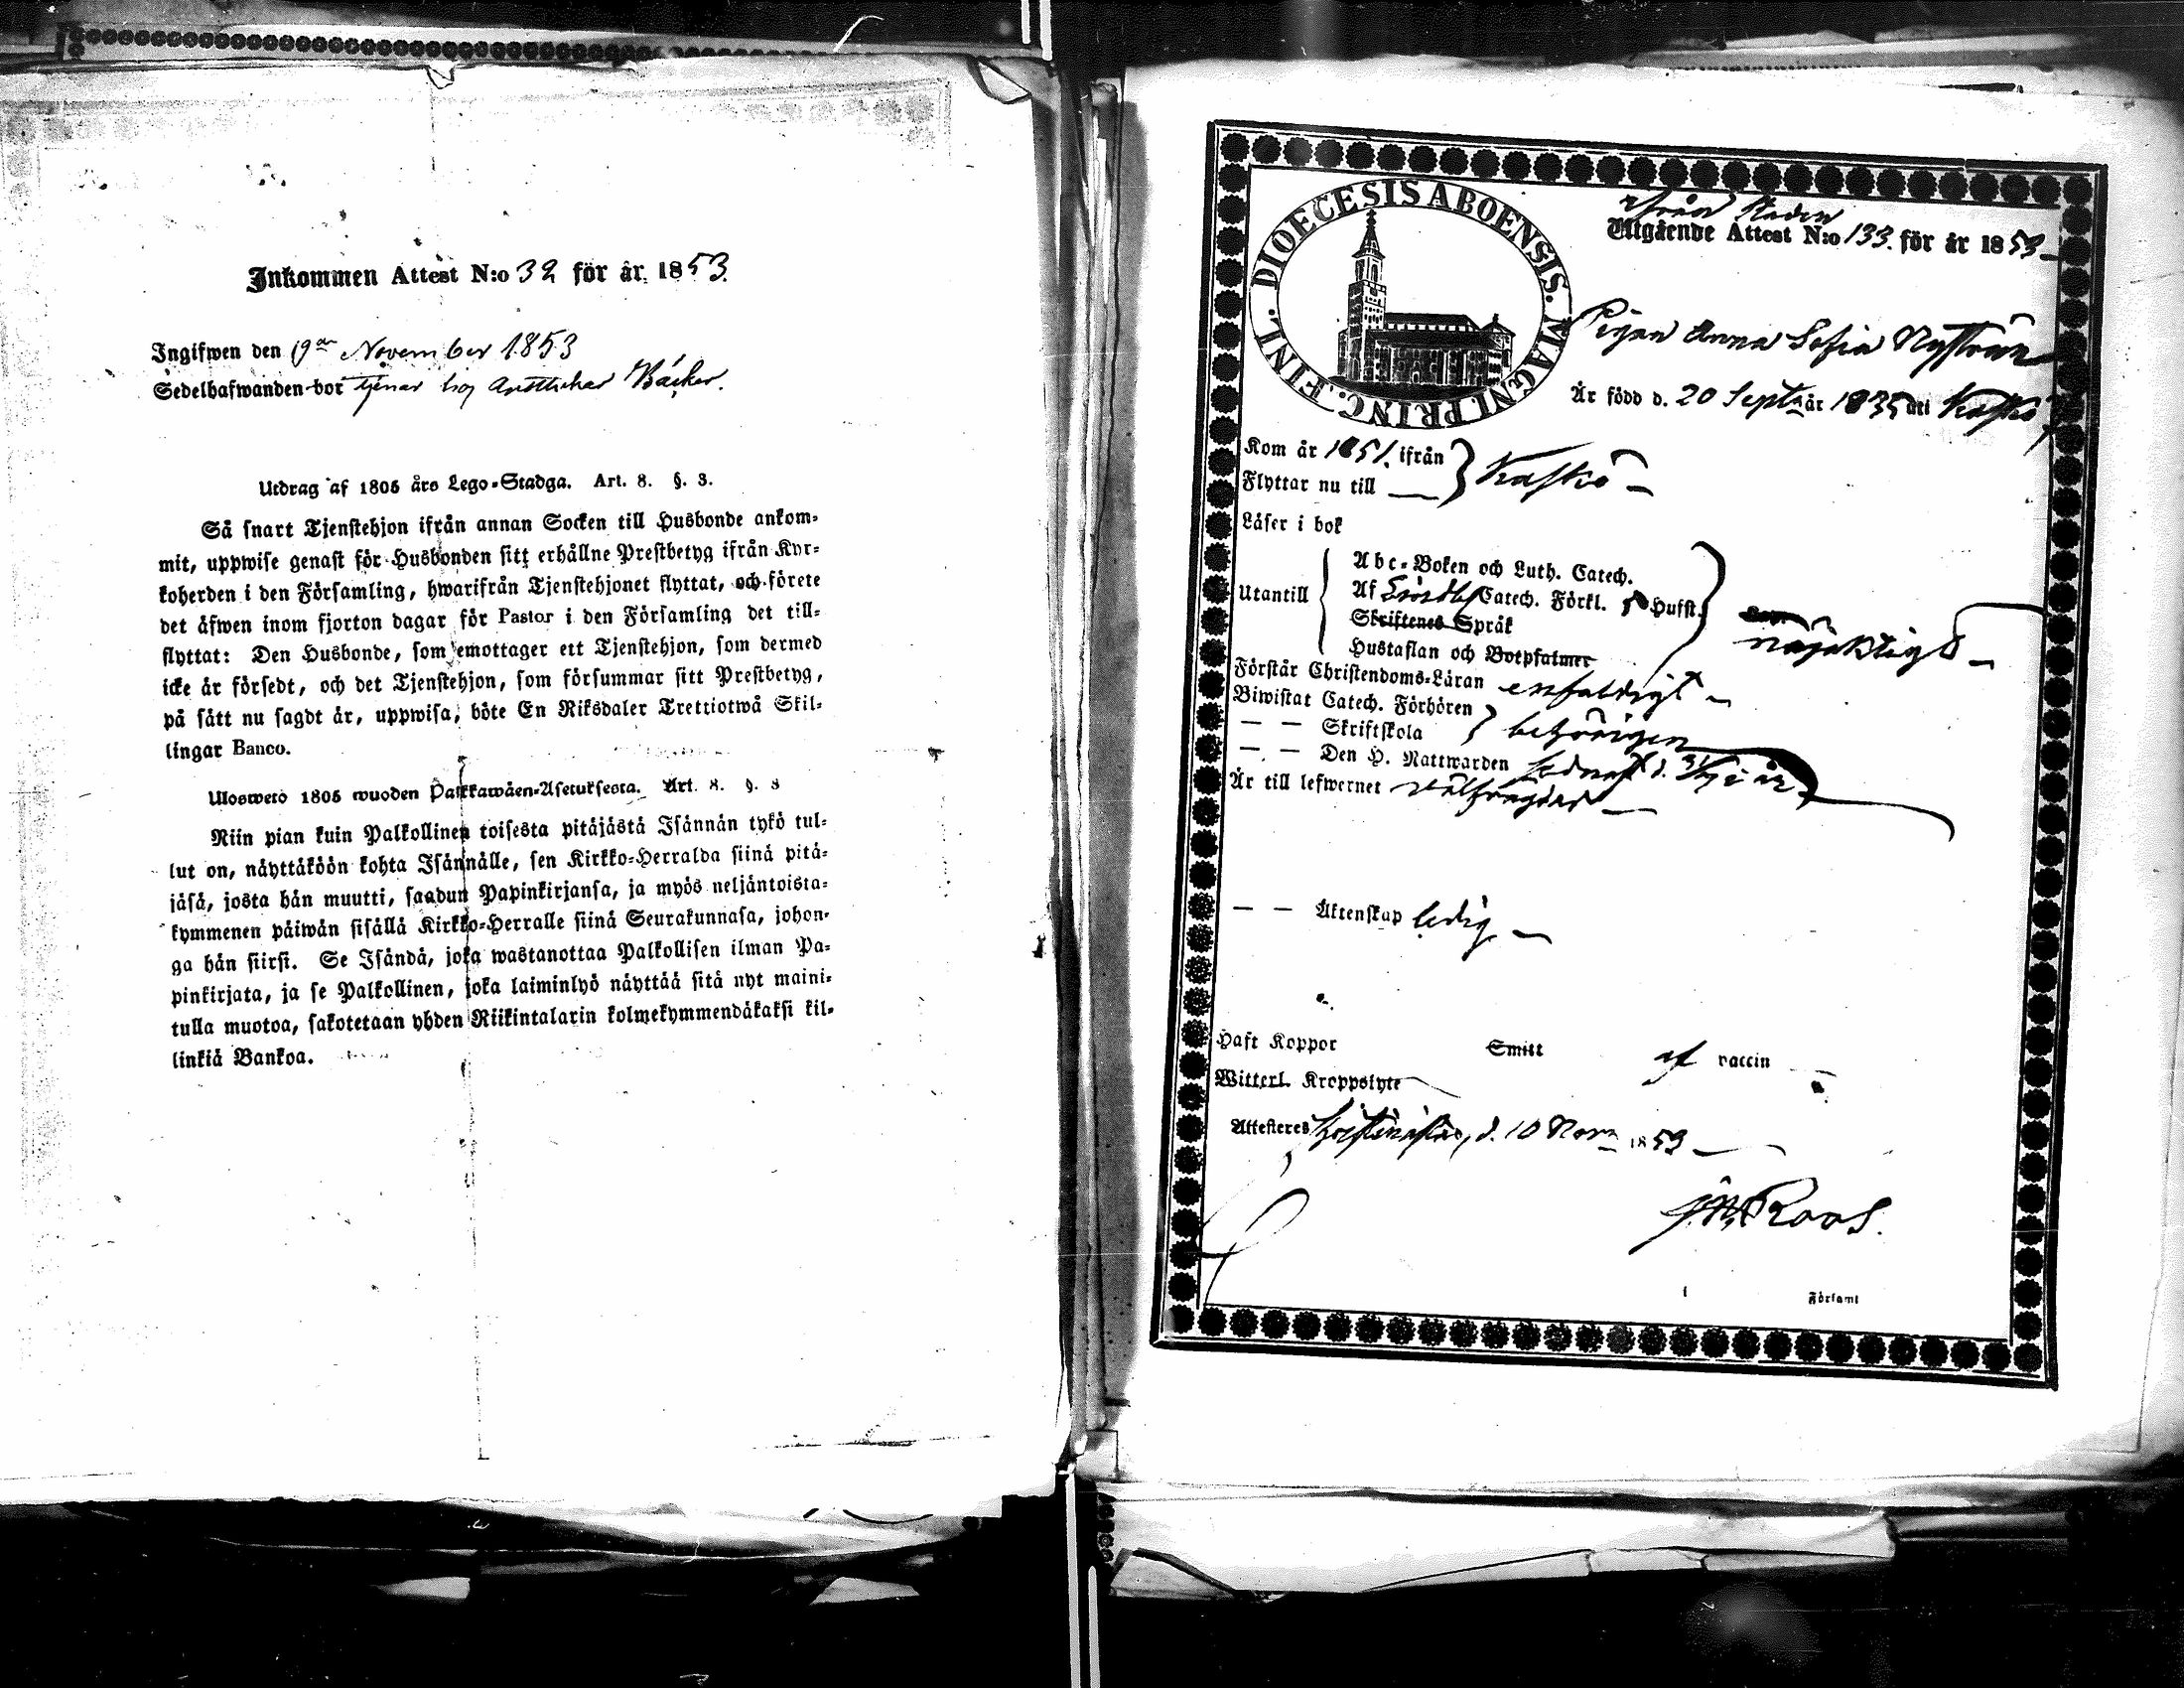 Inkommen Attest N:o 32 för år 1853.
Ingifwen den 19de November 1853
Sedelhafwanden bor tjenar hos Bäcker.
Utdrag af 1805 års Lego-Stadga. Art. 8. §. 3.
Så snart Tjenstehjon ifrån annan Socken till Husbonde ankom-
mit, uppwise genast för Husbonden sitt erhållne Prestbetyg ifrån Kyr-
koherden i den Församling, hwarifrån Tjenstehjonet flyttat, och förete
det äfwen inom fjorton dagar för Pastor i den Församling det till-
flyttat: Den Husbonde, som emottager ett Tjenstehjon, som dermed
icke är försedt, och det Tjenstehjon, som försummar sitt Prestbetyg,
på sätt nu sagdt är, uppwisa, böte En Riksdaler Trettiotwå Skil-
lingar Banco.
Ulosweto 1805 wuoden Palkkawäen-Asetuksesta. Art. 8. §. 3
Niin pian kuin Palkollinen toisesta pitäjästä Isännän tykö tul-
lut on, näyttäköön kohta Isännälle, sen Kirkko-Herralda siinä pitä-
jäsä, josta hän muutti, saadun Papinkirjansa, ja myös neljäntoista-
kymmenen päiwän sisällä Kirkko-Herralle siinä Seurakunnasa, johon-
ga hän siirsi. Se Isändä, joka wastanottaa Palkollisen ilman Pa-
pinkirjata, ja se Palkollinen, joka laiminlyö näyttää sitä nyt maini-
tulla muotoa, sakotetaan yhden Riikintalarin kolmekymmendäkaksi kil-
linkiä Bankoa.
DIOECESIS ABOENSIS. MAGNI PRINC. FINL.
ifrån Staden
Utgående Attest N:o 133. för år 1853
Pigan Anna Sofia Nyström
Är född d. 20 Septr år 1835 uti Kaskö
Kom år 1851. ifrån
Flyttar nu till
Kaskö
Läser i bok
Utantill
Abc-Boken och Luth. Catech.
Af Catech. Förkl. Hufst.
Skriftenes Språk
Hustaflan och Botpsalmer
nöjaktigt
Förstår Christendoms-Läran enfaldigt
Biwistat Catech. Förhören
— — Skriftskola
behörigen
— — Den H. Nattwarden sednast d. i år
Är till lefwernet wälfrägdad
— — Äktenskap ledig
Haft Koppor Smitt af vaccin
Witterl. Kroppslyte
Attesteres Christinestad, d. 10 Novr 1853
Roos.
i Församl